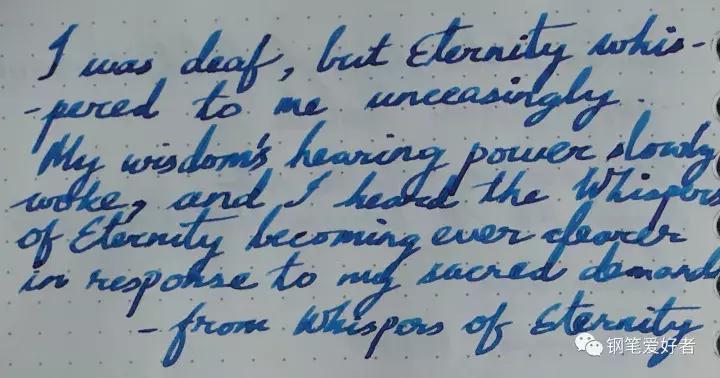 I was deaf, but Eternity whis-
-pered to me unceasingly.
My wisdom's hearing power slowly
woke, and I heard the Whispers
of Eternity becoming ever clearer
in response to my sacred demand
- from Whispers of Eternity
钢笔爱好者